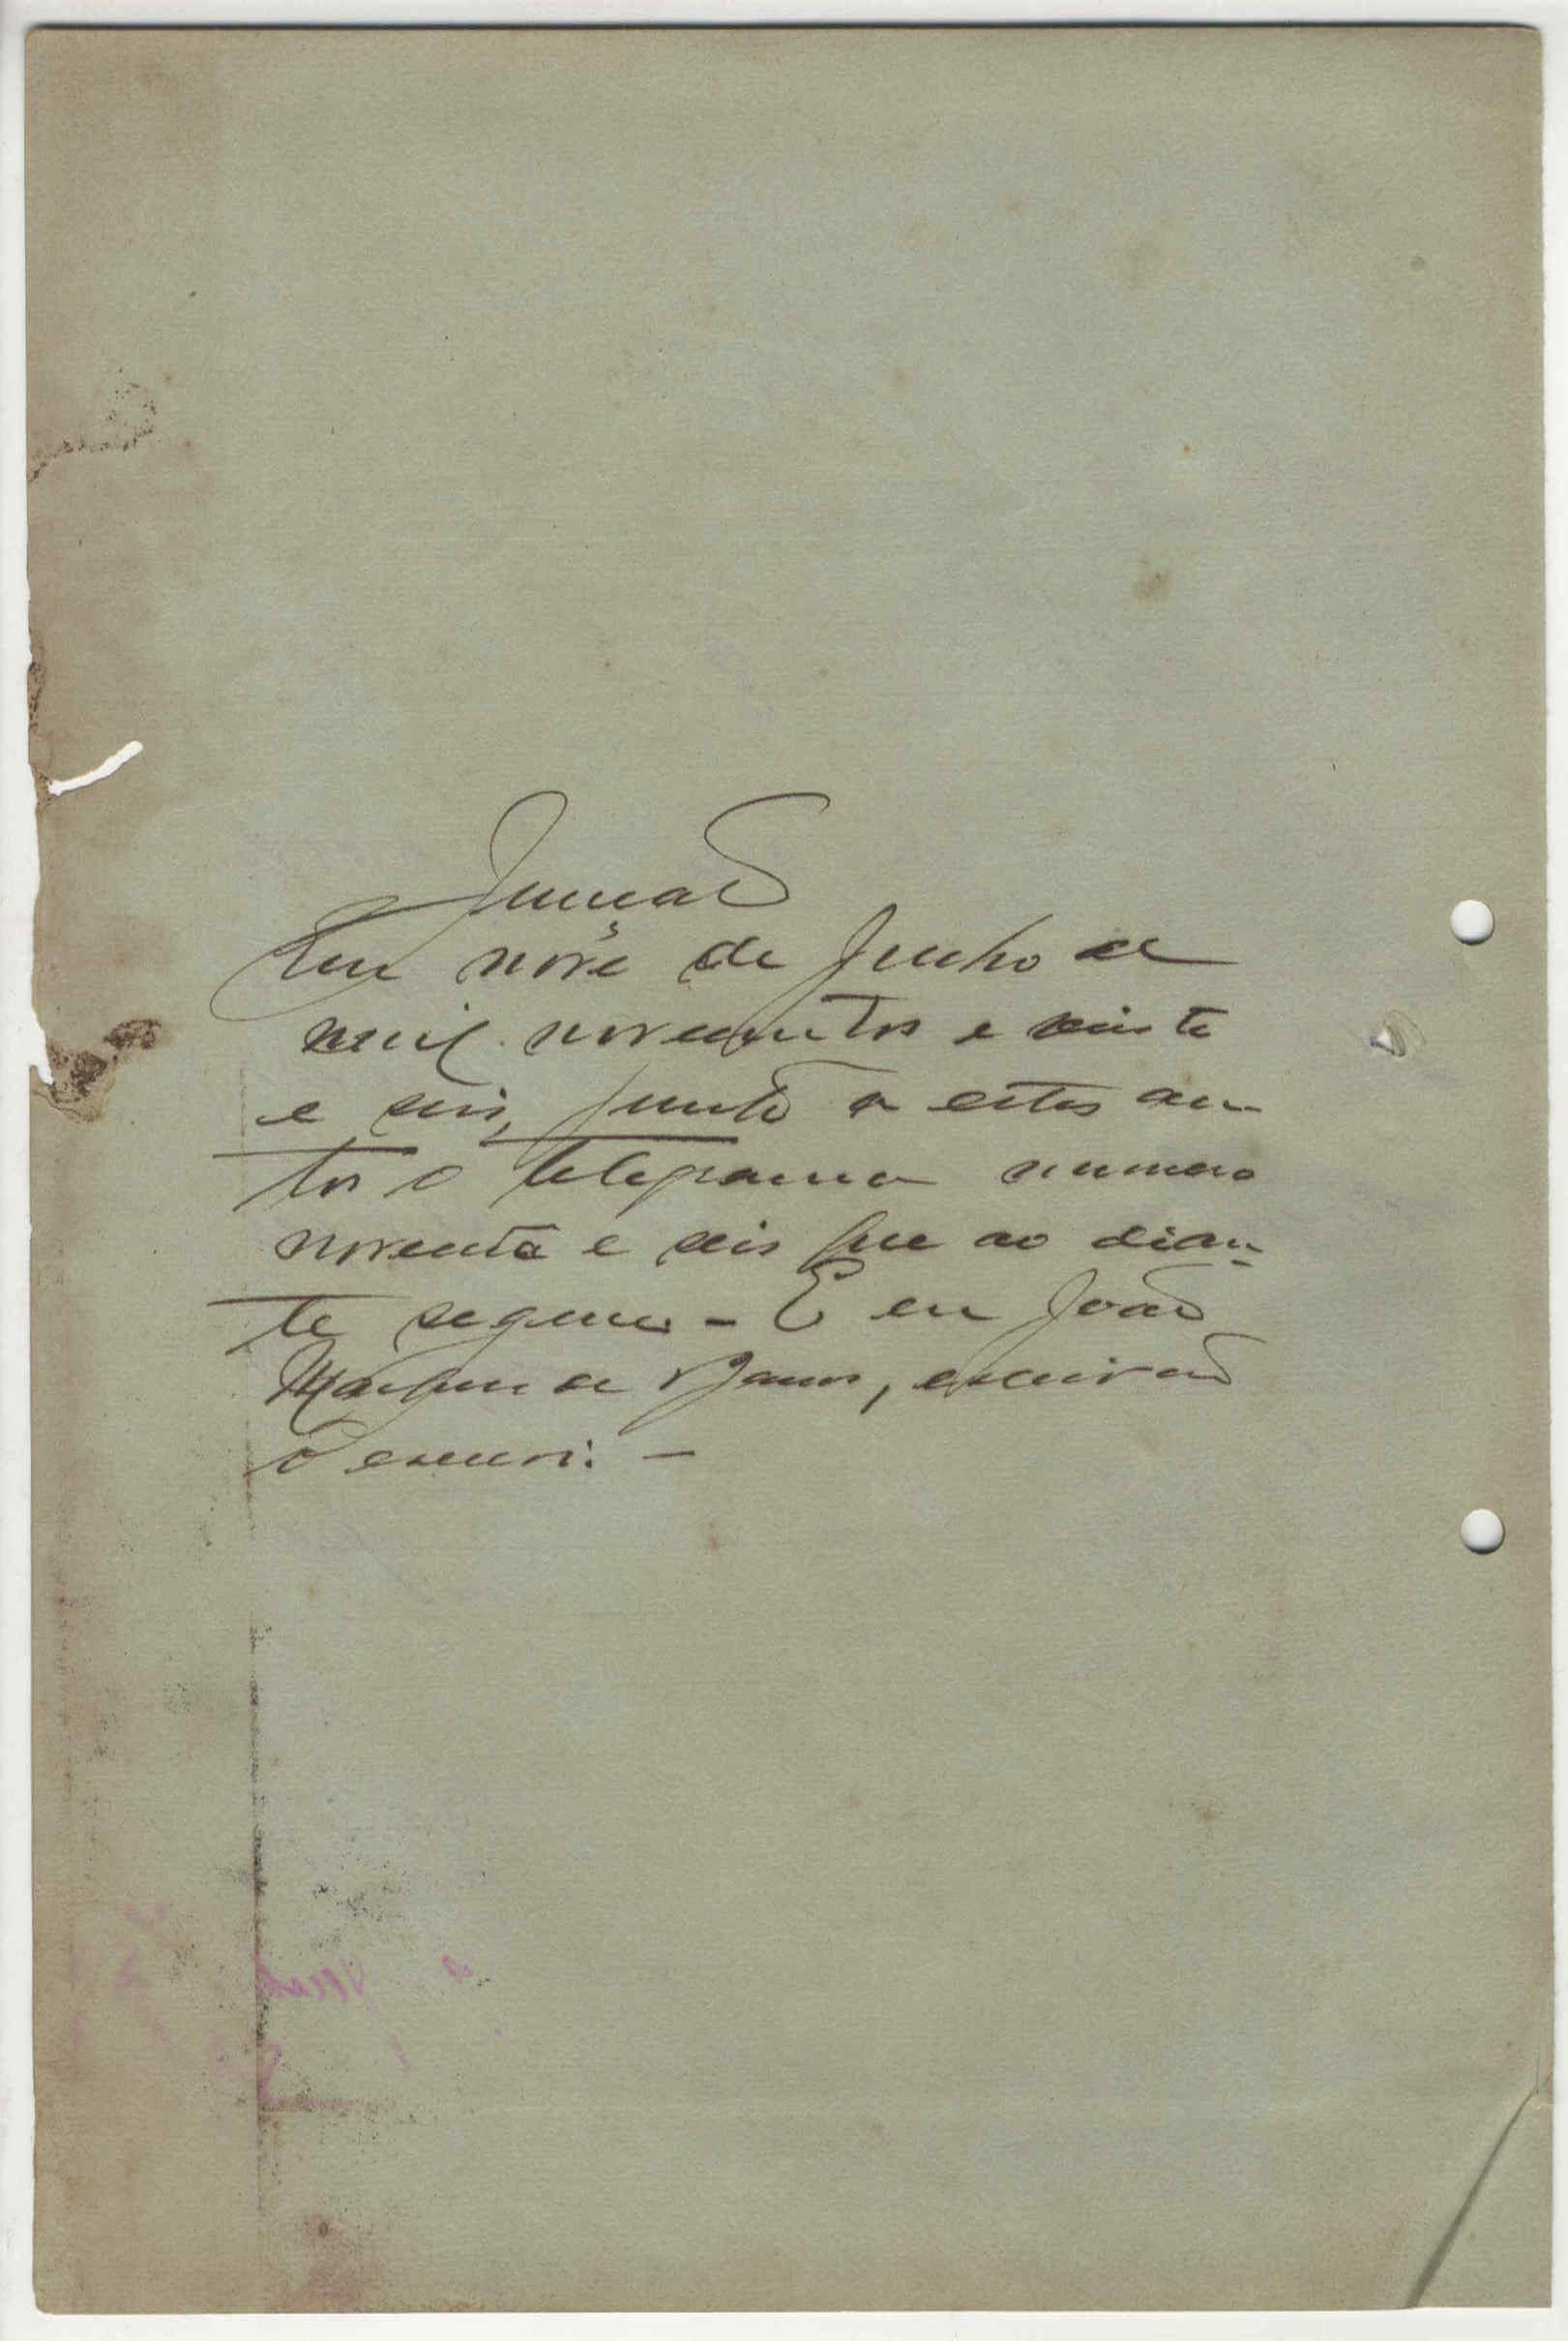 Juncão
Em nove de Junho de
mil novecentos e vinte
e seis, junto a estes au-
tos o telegrama numero
noventa e seis que ao dian-
te segue - E eu João
de, escrivão
o escrevi. -